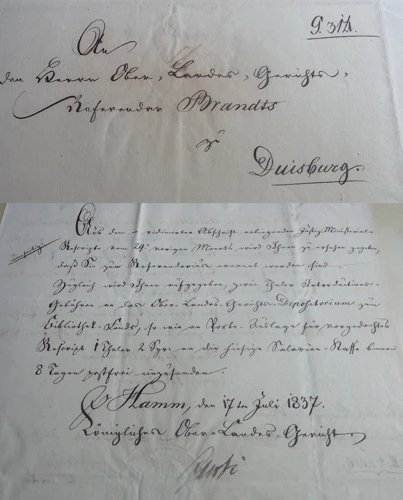 An
den Herrn Ober-Landes-Gerichts-
Referendar Brandts
zu
Duisburg.
Aus dem in vidimirter Abschrift anliegenden Justiz-Ministerial-
Rescripte vom 29n vorigen Monats wird Ihnen zu ersehen gegeben,
daß Sie zum Referendarius ernannt worden sind.
Zugleich wird Ihnen aufgegeben, zwei Thaler Introductions-
Gebühren an das Ober-Landes-Gerichts-Depositorium zum
Bibliothek-Fonds, so wie an Porto-Auslage für vorgedachtes
Rescript 1 Thaler 2 Sgr. an die hiesige Salarien-Kasse binnen
8 Tagen postfrei einzusenden.
Hamm, den 17ten Juli 1837.
Königliches Ober-Landes-Gericht